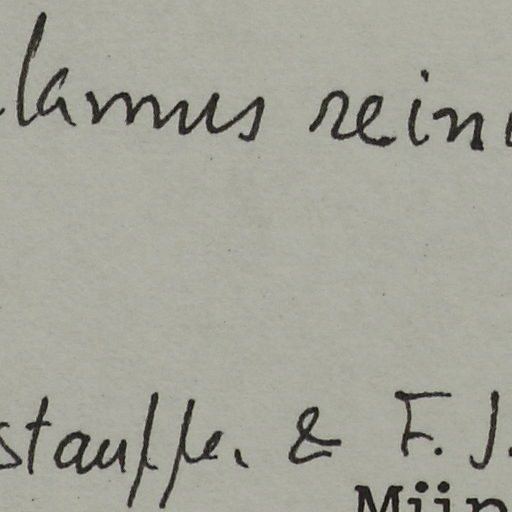 lamus rein
stauffer. & F. J.
Mün